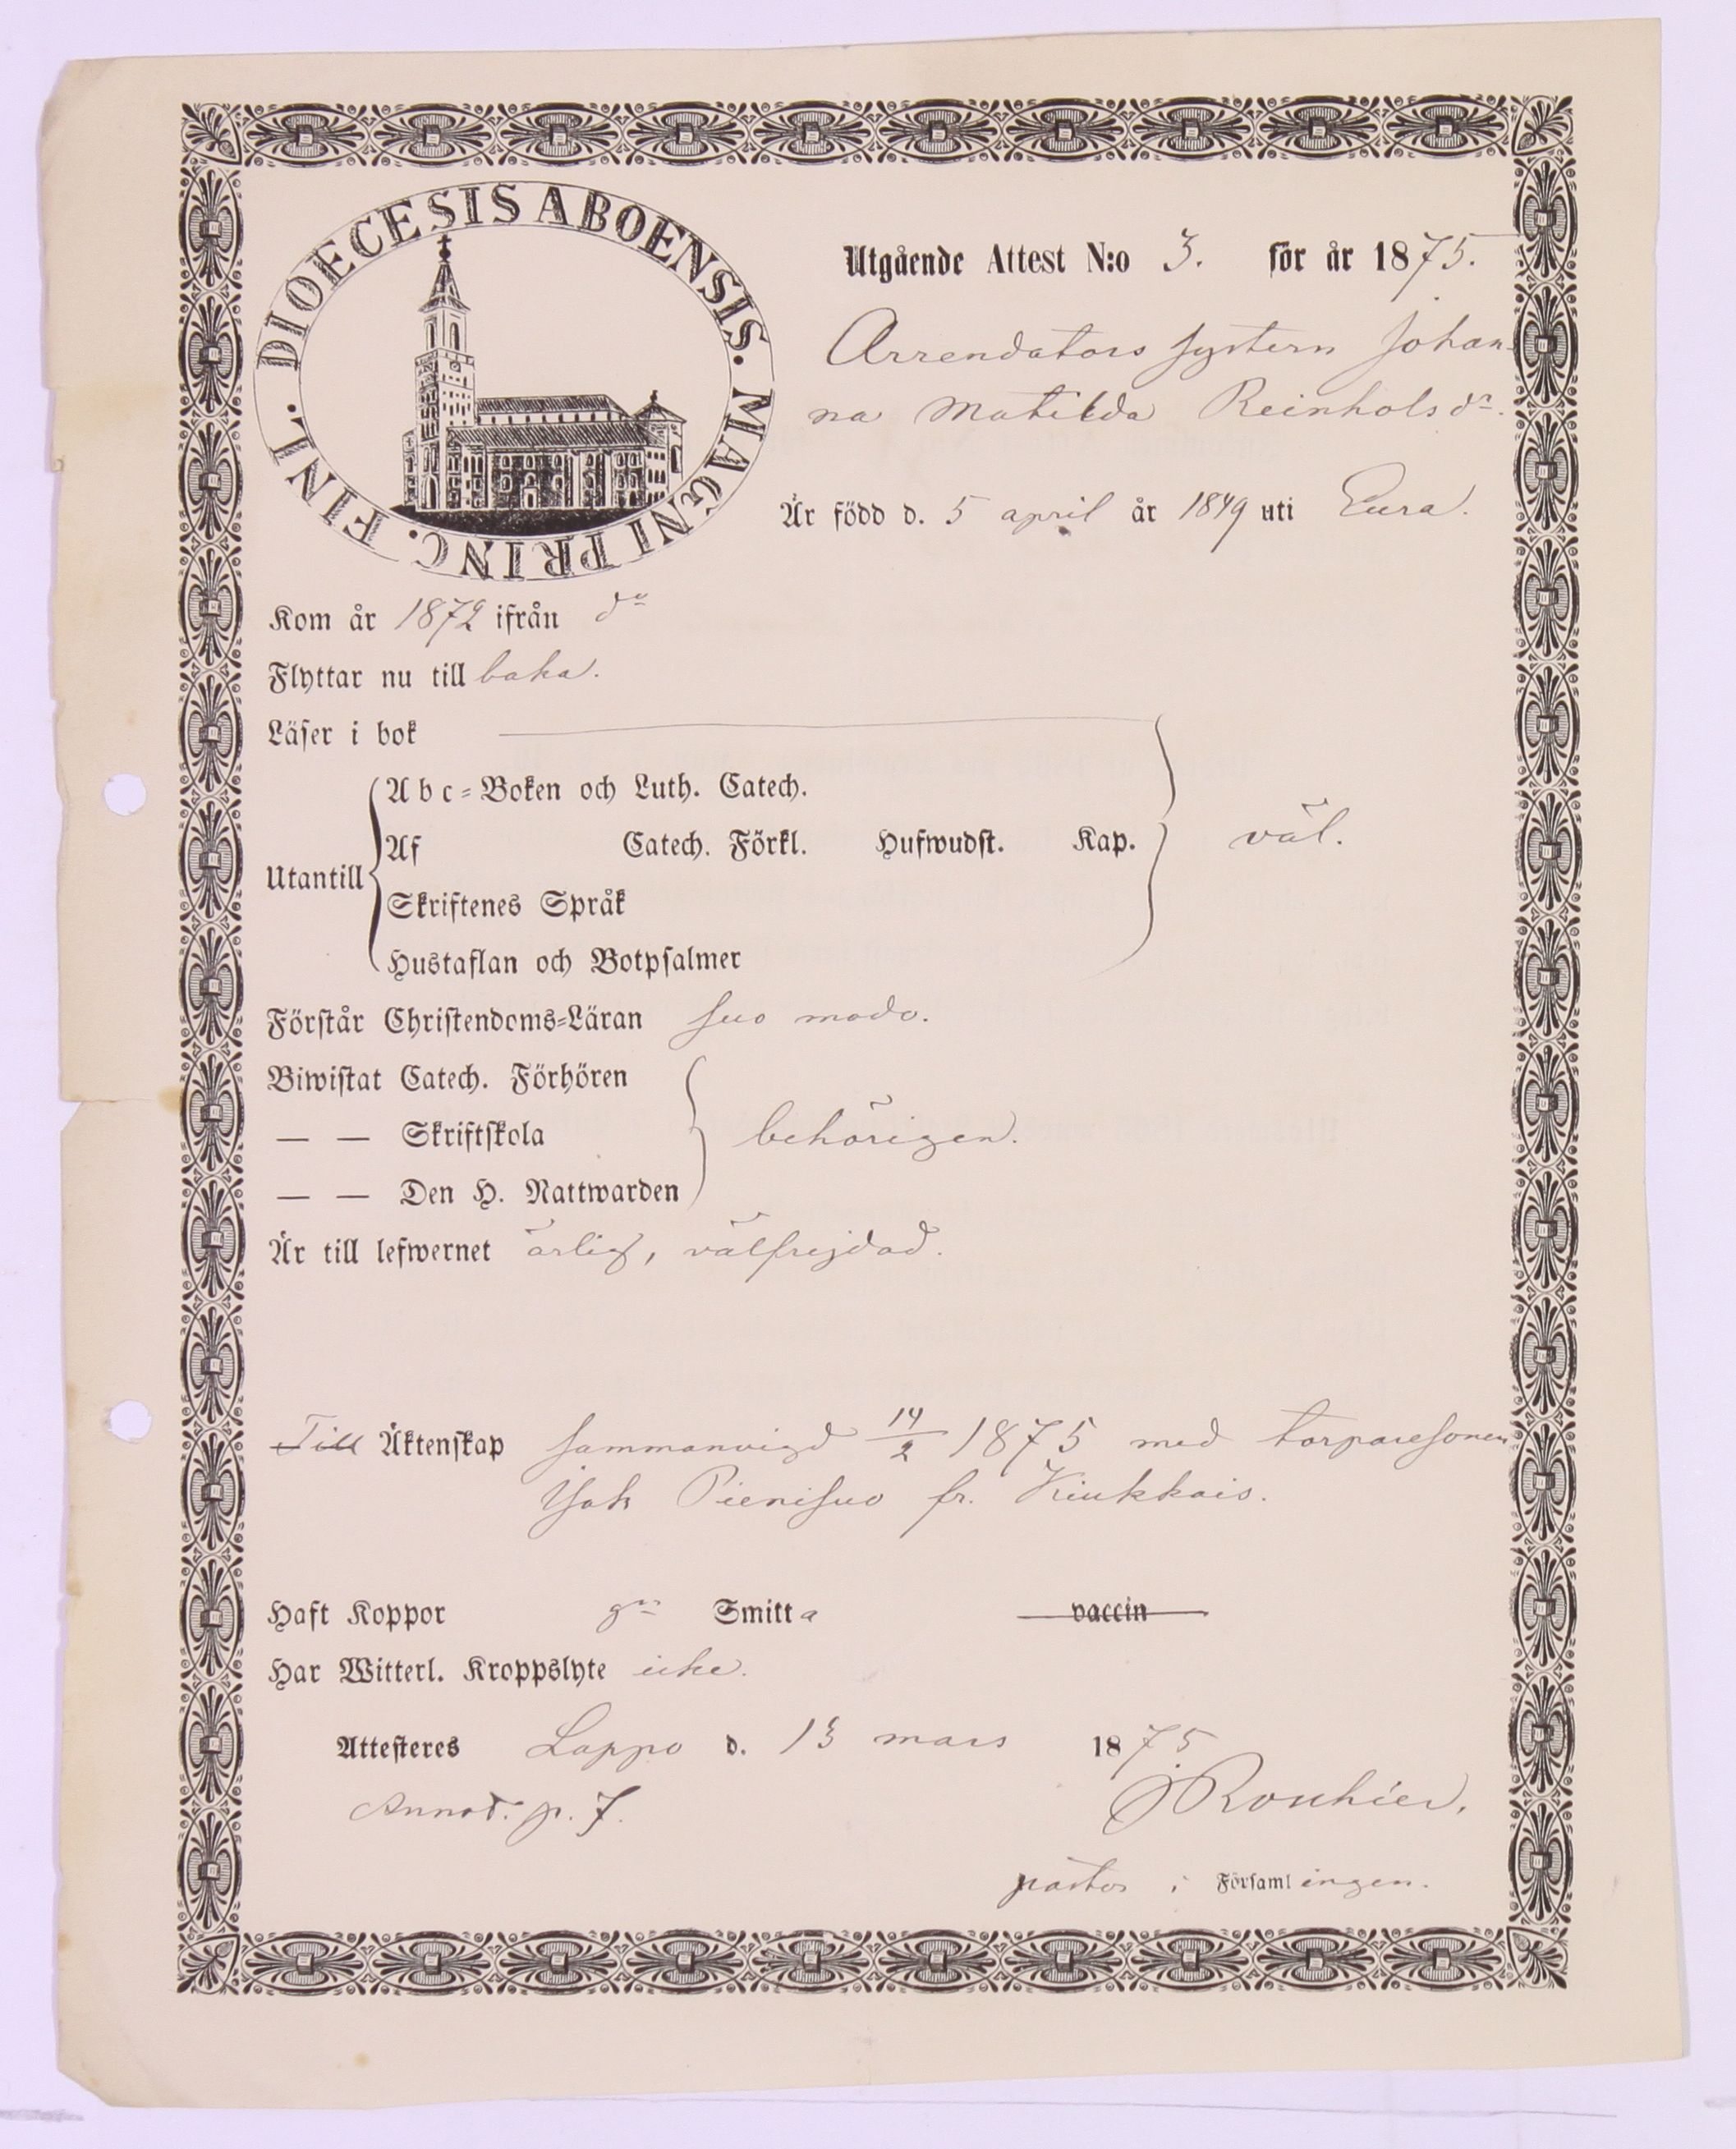 DIOECESIS ABOENSIS. MAGNI PRINC. FINL.
Utgående Attest N:o 3. för år 1875.
Arrendators systern Johan-
na Matilda Reinholsdr.
Är född d. 5 april år 1849 uti Eura.
Kom år 1872 ifrån do
Flyttar nu till baka.
Läser i bok
Abc-Boken och Luth. Catech.
Af Catech. Förkl. Hufwudst. Kap. väl.
Utantill
Skriftenes Språk
Hustaflan och Botpsalmer
Förstår Christendoms-Läran suo modo.
Biwistat Catech. Förhören
— — Skriftskola behörigen.
— — Den H. Nattwarden
Är till lefwernet ärlig, välfrejdad.
Till Äktenskap sammanvigd 14/2 1875 med torparesonen
Isak Pienisuo fr. Kiukkais.
Haft Koppor gm Smitta vaccin
Har Witterl. Kroppslyte icke.
Attesteres Lappo d. 13 mars 1875
Annot. p. 7.
pastor i Församlingen.